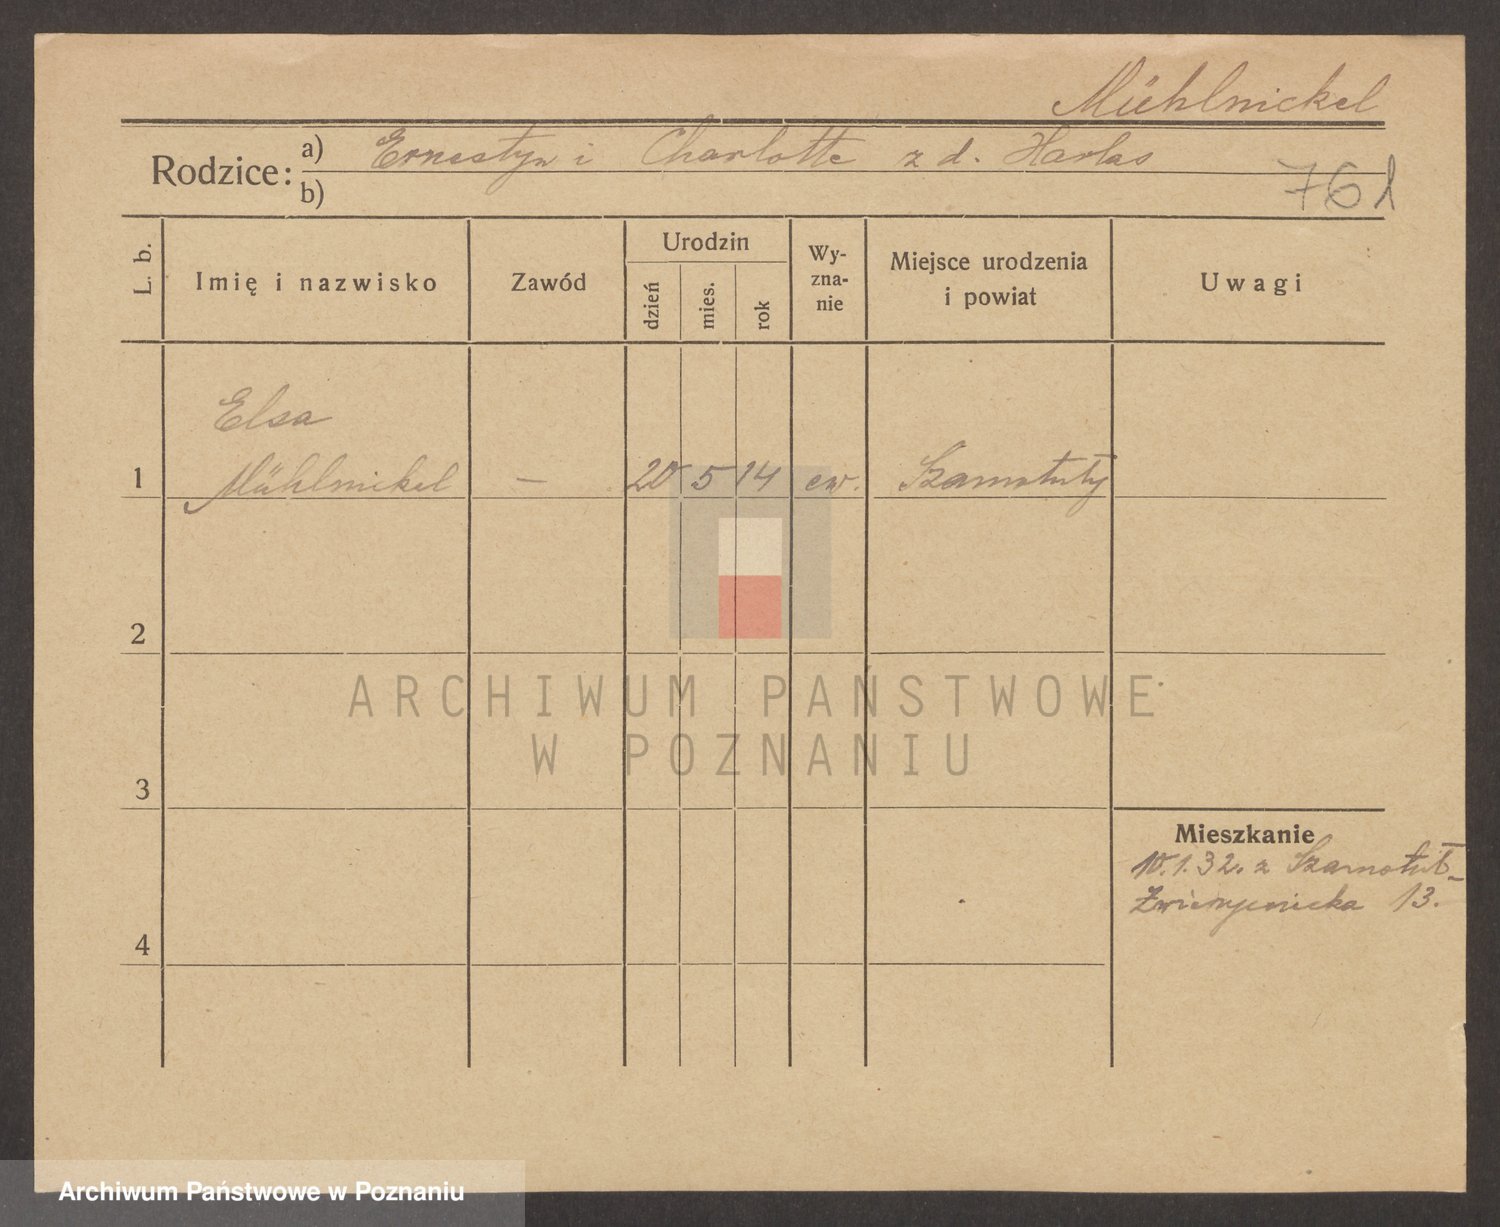 Mühlnickel
Rodzice: a) Ernestyn i Charlotte z d. Harlas
b)
761
L. b.
Imię i nazwisko
Zawód
Urodzin
dzień
mies.
rok
Wy-
zna-
nie
Miejsce urodzenia
i powiat
Uwagi
Elsa
1 Mühlnickel — 20 5 14 ew. Szamotuły
2
3
4
Mieszkanie
10.1.32. z Szamotuł-
Zwierzyniecka 13.
ARCHIWUM PAŃSTWOWE
W POZNANIU
Archiwum Państwowe w Poznaniu